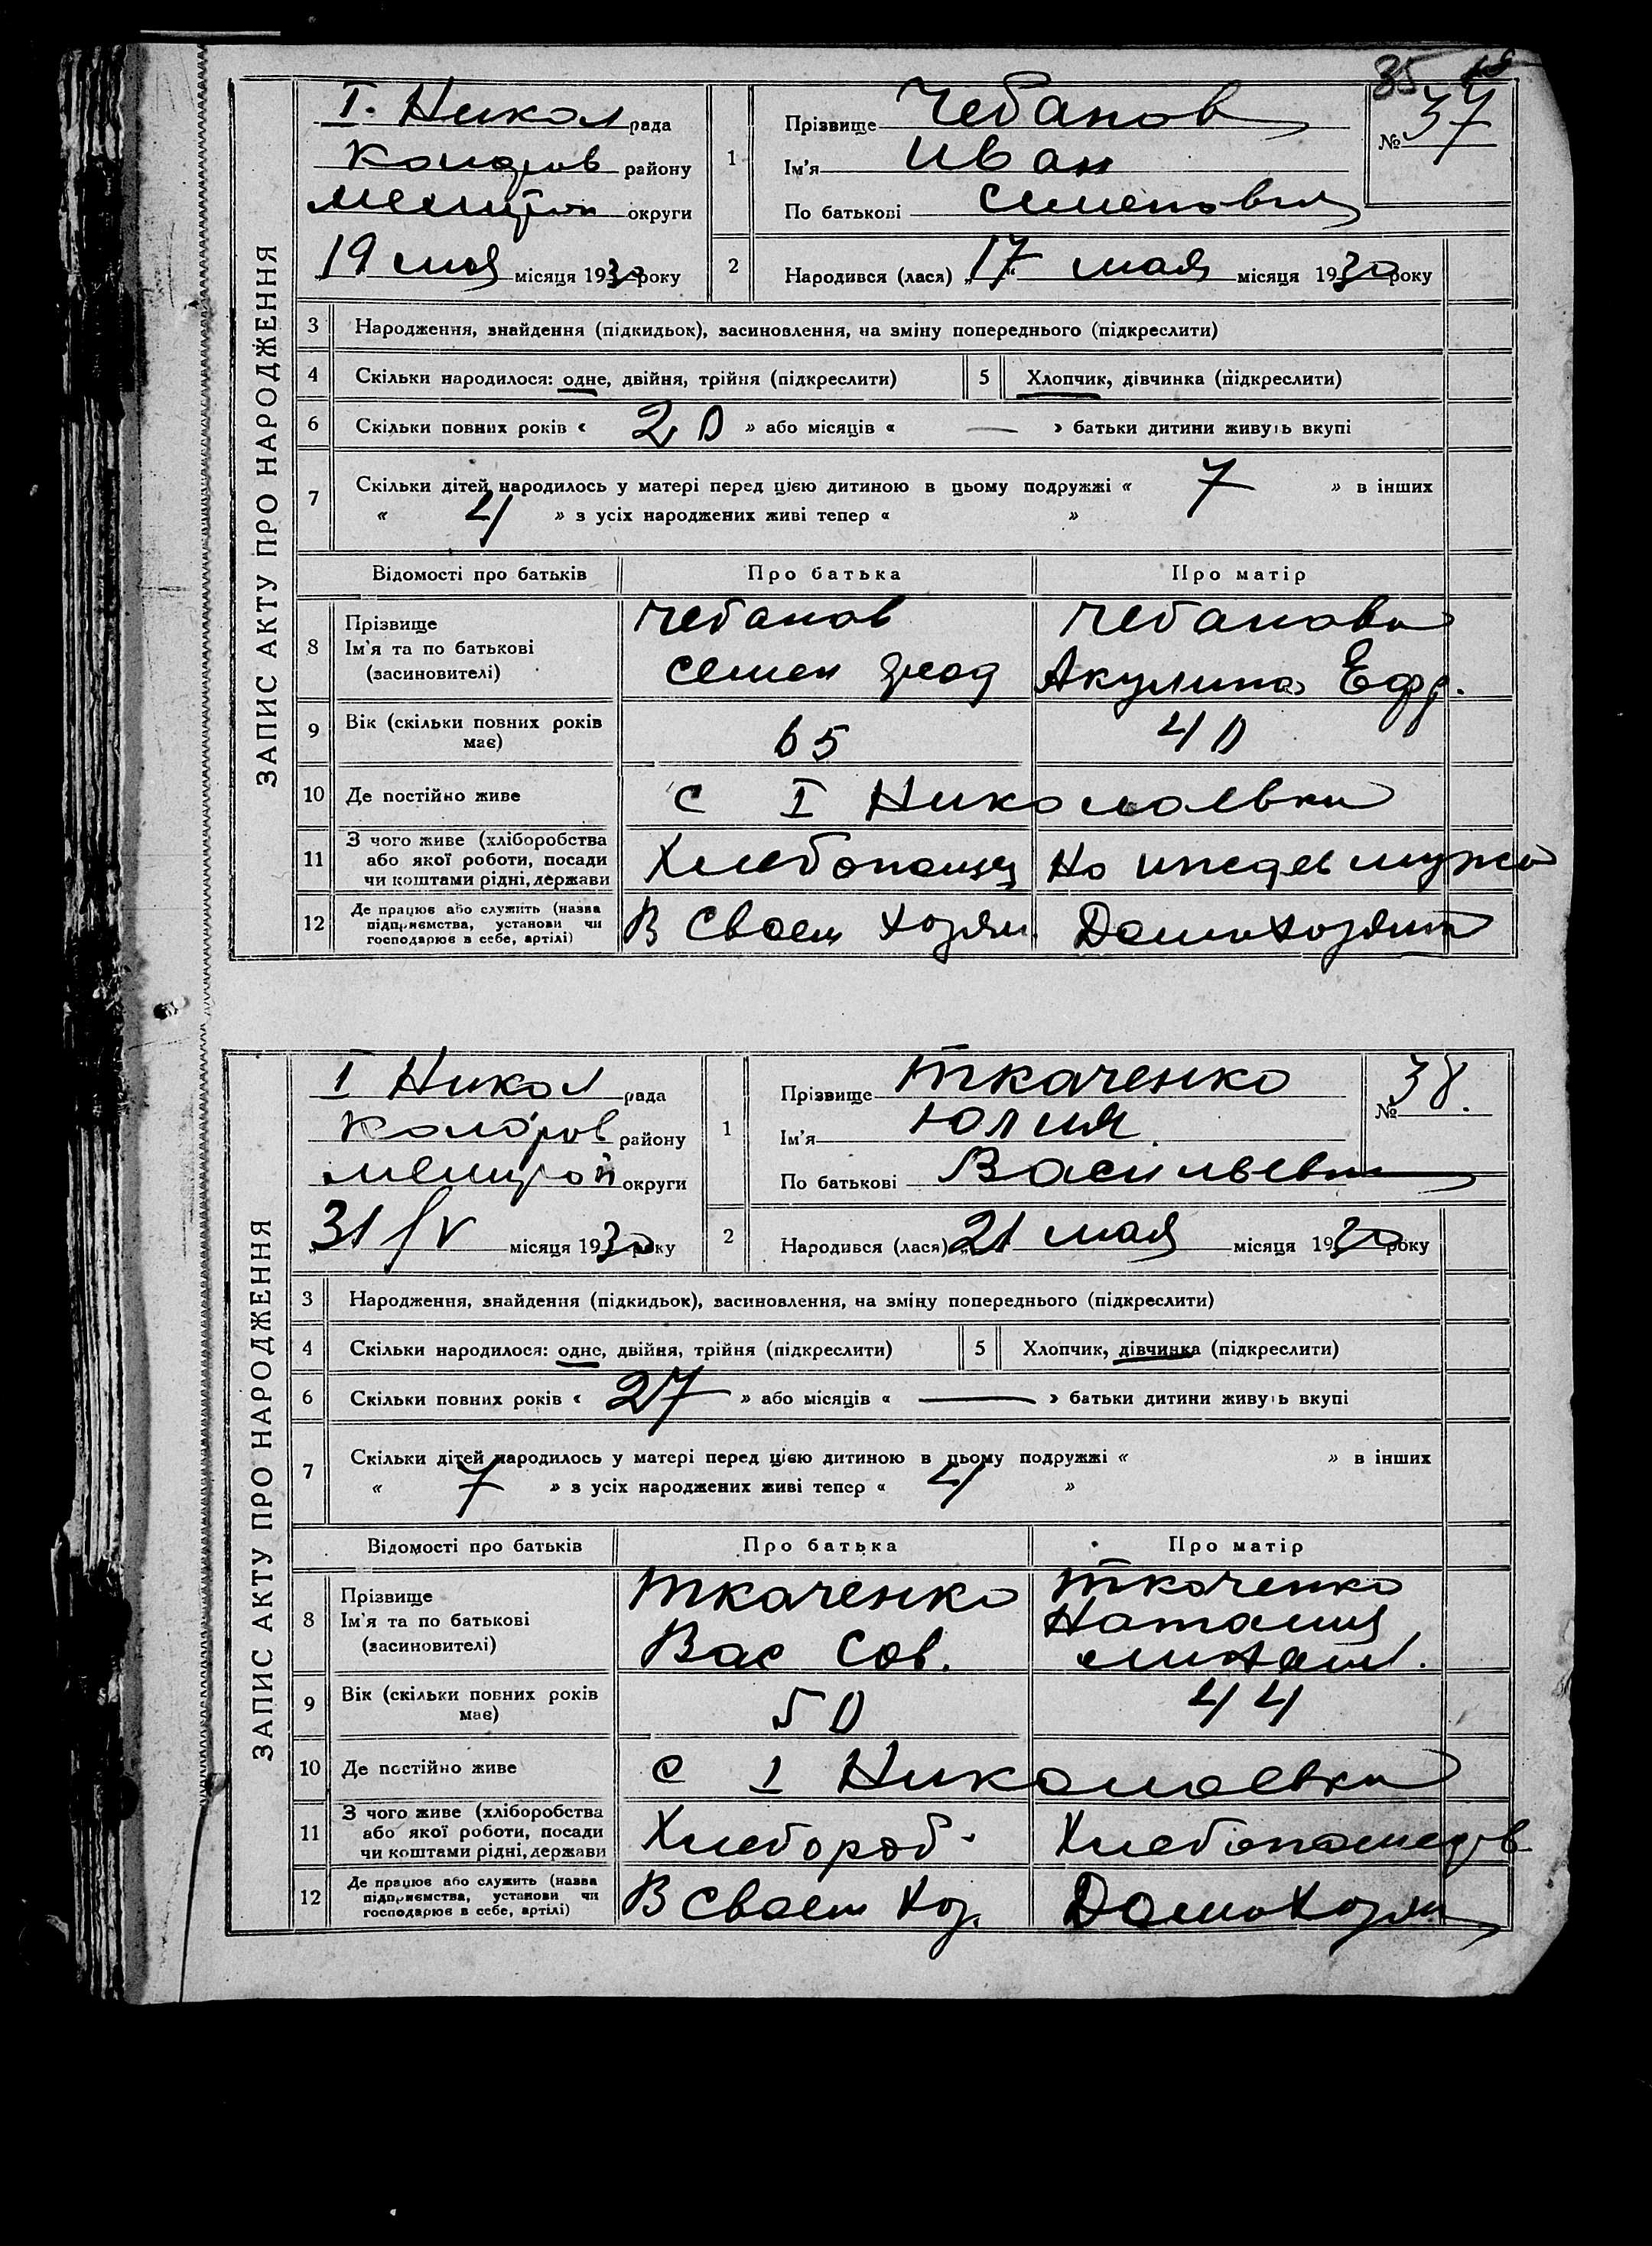 35
ЗАПИС АКТУ ПРО НАРОДЖЕННЯ
І. Никол рада
район​у
округи
19 мая місяця 1930 року
1
Прізвище Чебанов
Ім'я Иван
По батькові Семенович
№ 37
2
Народився (лася) „17“ мая місяця 1930 року
3 Народження, знайдення (підкидьок), засиновлення, на зміну попереднього (підкреслити)
4 Скільки народилося: одне, двійня, трійня (підкреслити)
5 Хлопчик, дівчинка (підкреслити)
6 Скільки повних років « 20 » або місяців « — » батьки дитини живуть вкупі
7 Скільки дітей народилось у матері перед цією дитиною в цьому подружжі « 7 » в інших
« 4 » з усіх народжених живі тепер « »
Відомості про батьків Про батька Про матір
8 Прізвище
Ім'я та по батькові
(засиновителі)
Чебанов
Семен
Чебанова
Акулина Ефр.
9 Вік (скільки повних років
має)
65 40
10 Де постійно живе с І Николаевка
11 З чого живе (хліборобства
або якої роботи, посади
чи коштами рідні, держави
Хлебопашец На ижедев мужа
12 Де працює або служить (назва
підприємства, установи чи
господарює в себе, артілі)
В своем хозяй. Домохозяй
ЗАПИС АКТУ ПРО НАРОДЖЕННЯ
І Никол рада
району
округи
31/V місяця 1930 року
1
Прізвище Ткаченко
Ім'я Юлия
По батькові Васильевна
№ 38.
2
Народився (лася) „21 мая місяця 1930 року
3 Народження, знайдення (підкидьок), засиновлення, на зміну попереднього (підкреслити)
4 Скільки народилося: одне, двійня, трійня (підкреслити)
5 Хлопчик, дівчинка (підкреслити)
6 Скільки повних років « 27 » або місяців « — » батьки дитини живуть вкупі
7 Скільки дітей народилось у матері перед цією дитиною в цьому подружжі « » в інших
« 7 » з усіх народжених живі тепер « 4 »
Відомості про батьків Про батька Про матір
8 Прізвище
Ім'я та по батькові
(засиновителі)
Ткаченко
Вас Сав.
Ткаченко
Наталия
Михайл.
9 Вік (скільки повних років
має)
50 44
10 Де постійно живе с І Николаевка
11 З чого живе (хліборобства
або якої роботи, посади
чи коштами рідні, держави
Хлебороб
12 Де працює або служить (назва
підприємства, установи чи
господарює в себе, артілі)
В своем хоз. Домохозяй